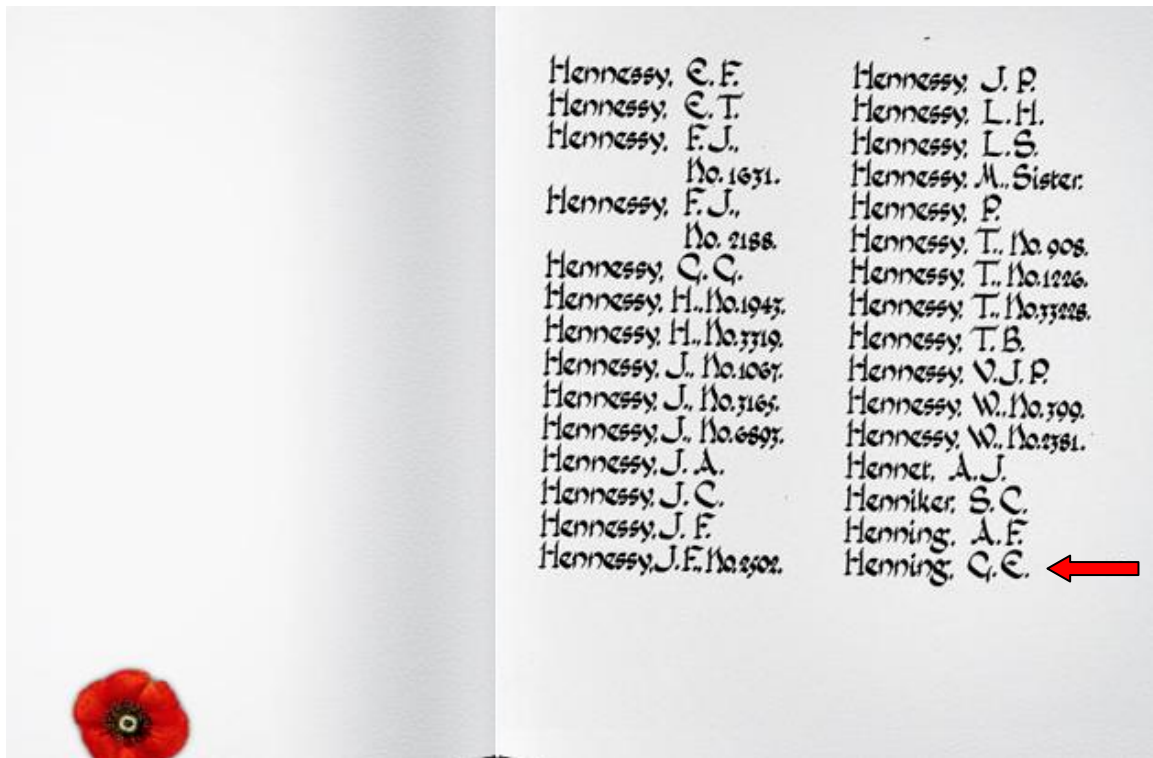 Hennessy, E. F.
Hennessy, E. T.
Hennessy, F. J.,
No. 1631.
Hennessy, F. J.,
No. 2188.
Hennessy, G. G.
Hennessy, H., No. 1943.
Hennessy, H., No. 3319.
Hennessy, J., No. 1067.
Hennessy, J., No. 3165.
Hennessy, J., No. 6893.
Hennessy, J. A.
Hennessy, J. C.
Hennessy, J. F.
Hennessy, J. F., No. 2502.
Hennessy, J. P.
Hennessy, L. H.
Hennessy, L. S.
Hennessy, M., Sister.
Hennessy, P.
Hennessy, T., No. 908.
Hennessy, T., No. 1226.
Hennessy, T., No. 33228.
Hennessy, T. B.
Hennessy, V. J. P.
Hennessy, W., No. 399.
Hennessy, W., No. 2381.
Hennet, A. J.
Henniker, S. C.
Henning, A. F.
Henning, G. E.